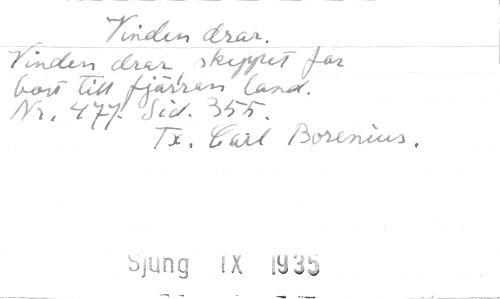 Vinden drar.
Vinden drar, skeppet far
bort till fjärran land.
Nr. 477. Sid. 355.
Tx. Carl Borenius.
Sjung IX 1935